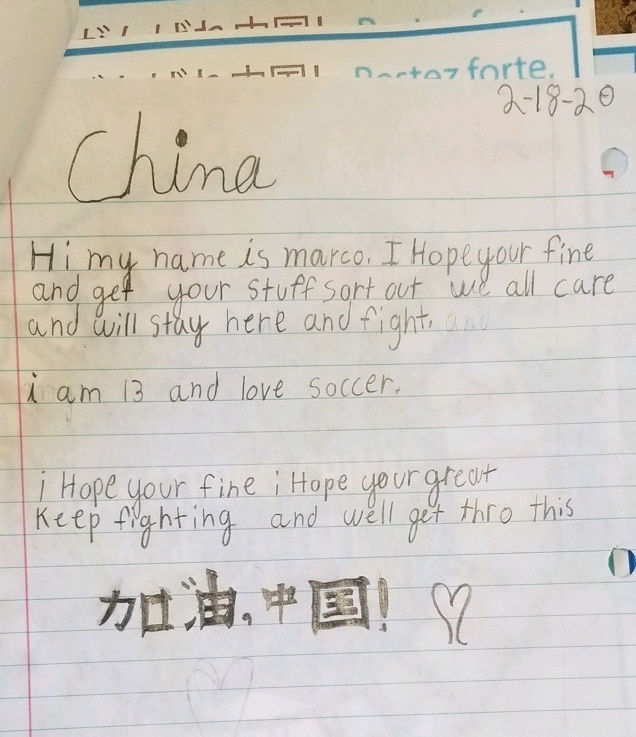 Portez forte.
2-18-20
China
Hi my name is marco. I Hope your fine
and get your stuff sort out we all care
and will stay here and fight. and
i am 13 and love soccer.
i Hope your fine i Hope your great
Keep fighting and we'll get thro this
加油,中国!